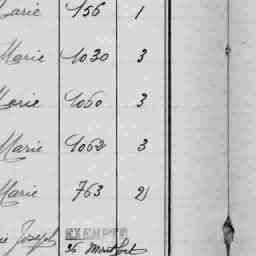 Marie 156 1
Marie 1030 3
Marie 1050 3
Marie 1052 3
Marie 763 2
Joseph EXEMPTÉ
36 Montfort